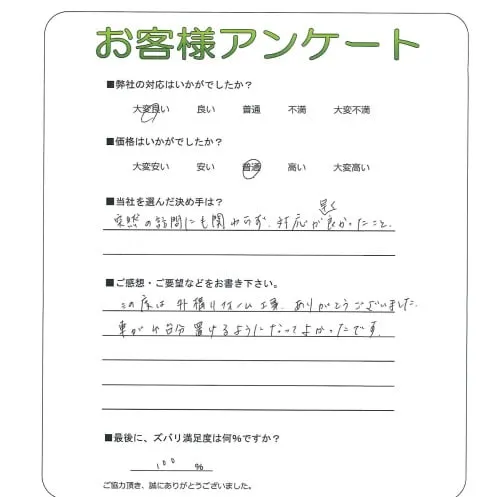 お客様アンケート
■弊社の対応はいかがでしたか？
大変良い 良い 普通 不満 大変不満
■価格はいかがでしたか？
大変安い 安い 普通 高い 大変高い
■当社を選んだ決め手は？
早く
突然の訪問にも関わらず、対応が良かったこと。
■ご感想・ご要望などをお書き下さい。
この度は外構リフォーム工事、ありがとうございました。
車が4台分置けるようになってよかったです。
■最後に、ズバリ満足度は何％ですか？
100 ％
ご協力頂き、誠にありがとうございました。